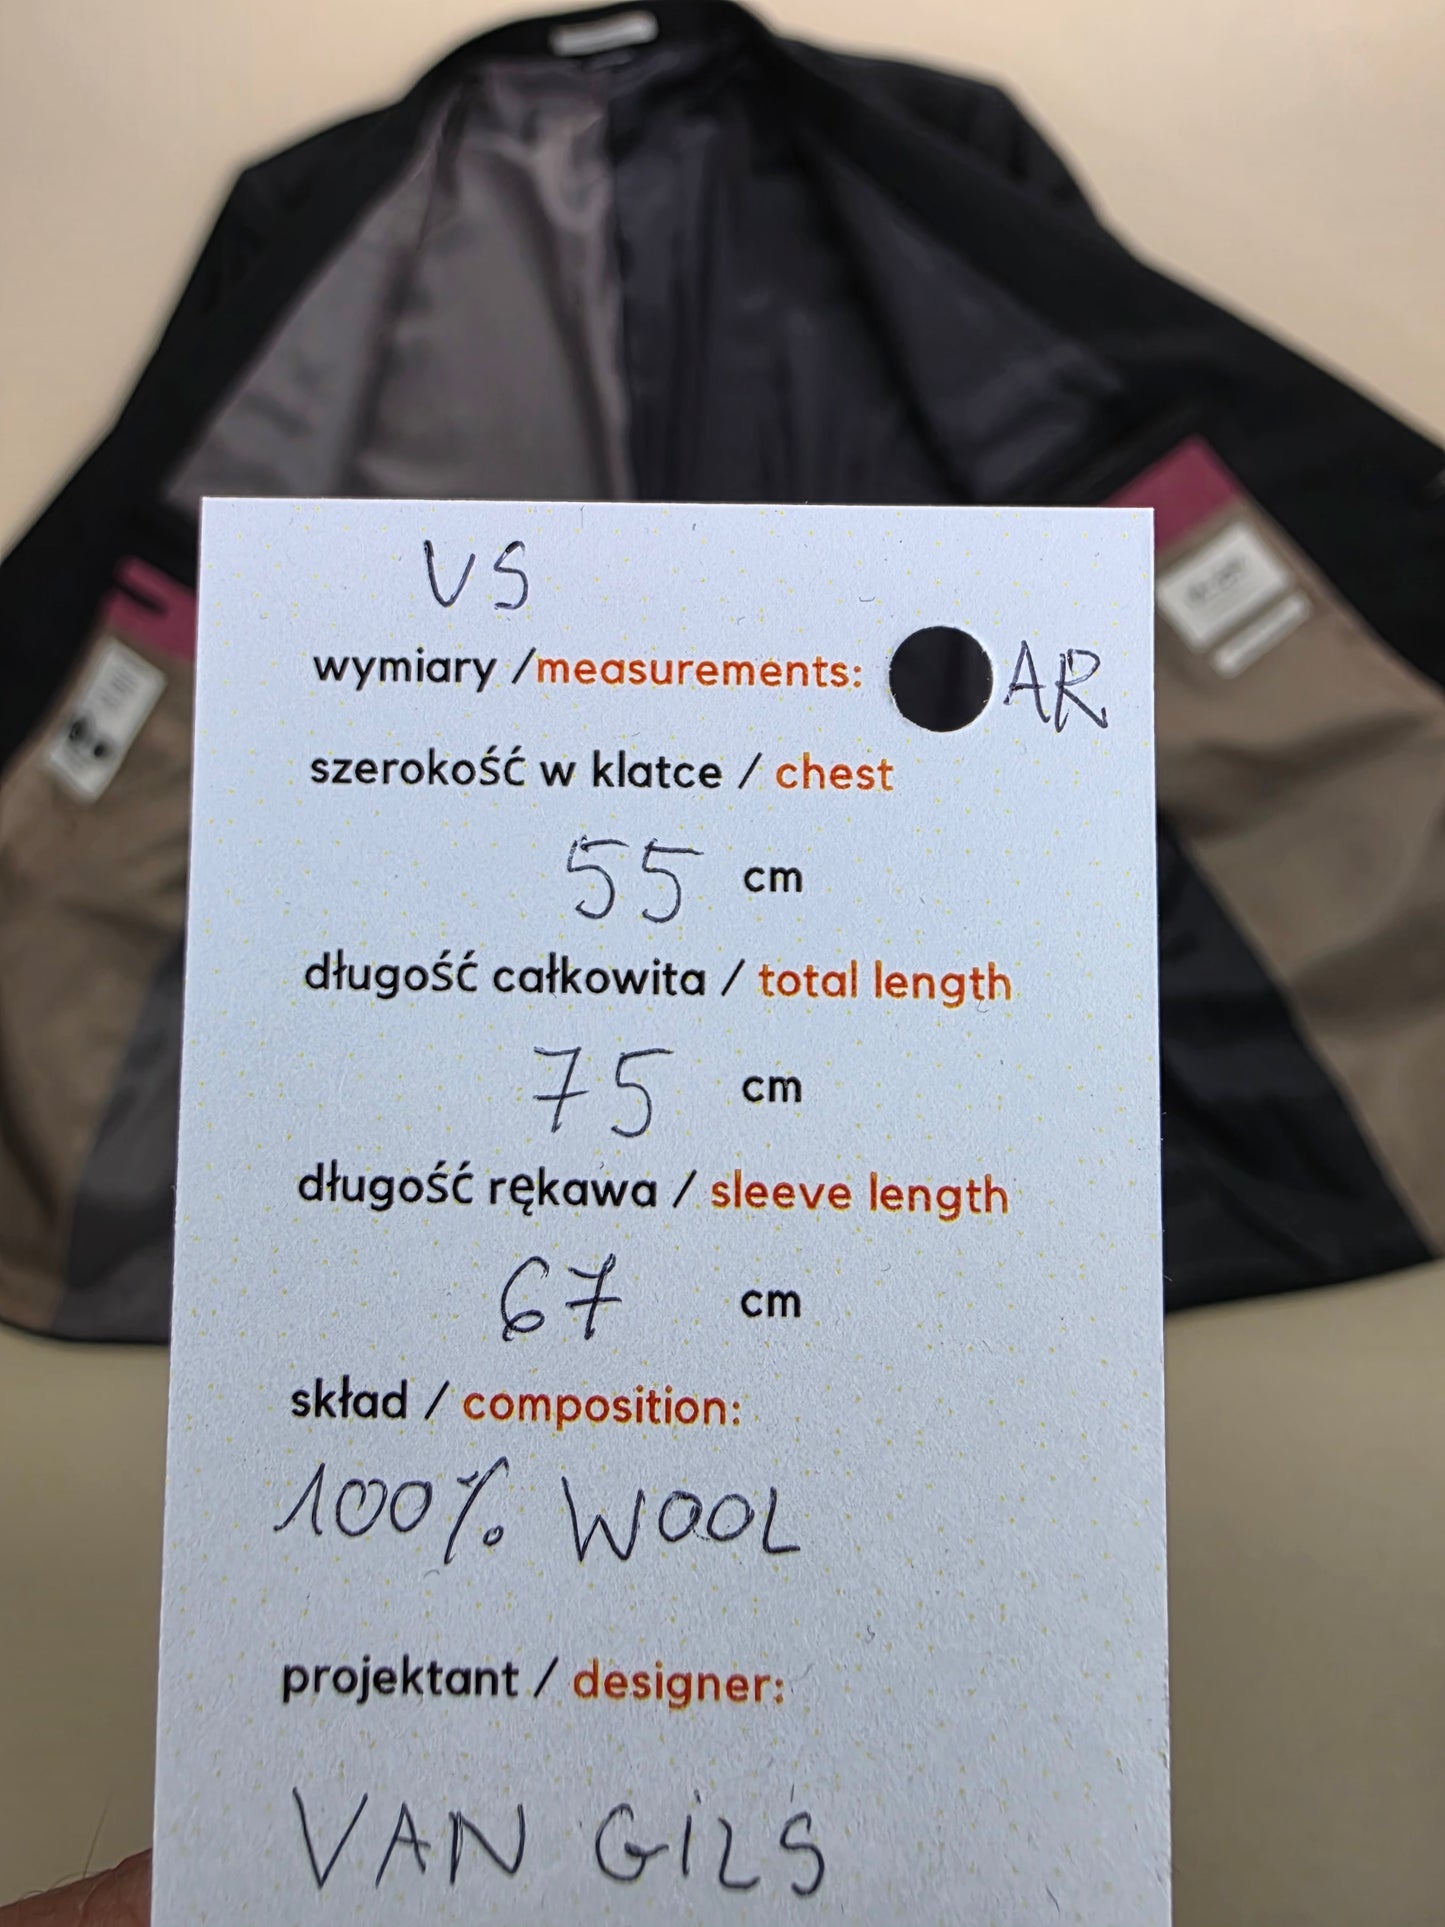 VS
wymiary /measurements: AR
szerokość w klatce / chest
55 cm
długość całkowita / total length
75 cm
długość rękawa / sleeve length
67 cm
skład / composition:
100% WOOL
projektant / designer:
VAN GILS